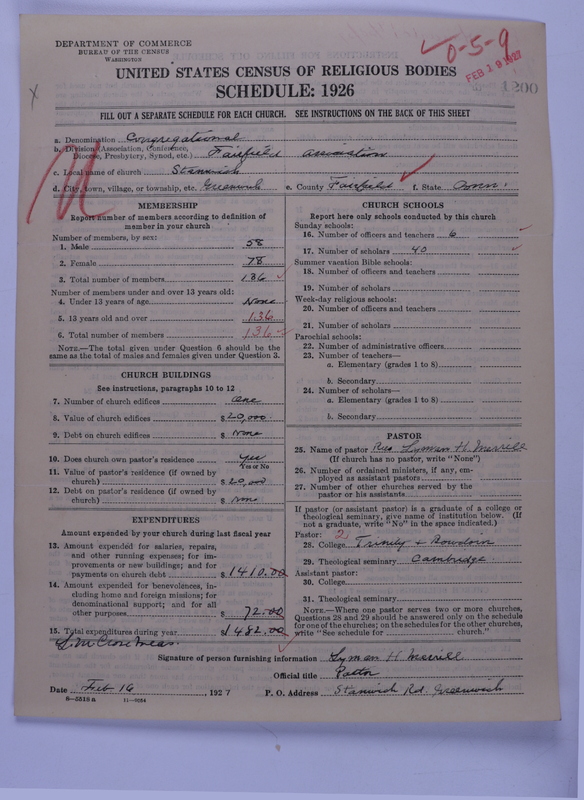 DEPARTMENT OF COMMERCE
BUREAU OF THE CENSUS
WASHINGTON
0-5-9
FEB 19 1927
1200
UNITED STATES CENSUS OF RELIGIOUS BODIES
SCHEDULE: 1926
FILL OUT A SEPARATE SCHEDULE FOR EACH CHURCH. SEE INSTRUCTIONS ON THE BACK OF THIS SHEET
a. Denomination Congregational
b. Division (Association, Conference,
Diocese, Presbytery, Synod, etc.) Fairfield association
c. Local name of church Stanwich
d. City, town, village, or township, etc. Greenwich e. County Fairfield f. State Conn.
MEMBERSHIP
Report number of members according to definition of
member in your church
Number of members, by sex:
1. Male 58
2. Female 78
3. Total number of members 136
Number of members under and over 13 years old:
4. Under 13 years of age None
5. 13 years old and over 136
6. Total number of members 136
NOTE.—The total given under Question 6 should be the
same as the total of males and females given under Question 3.
CHURCH BUILDINGS
See instructions, paragraphs 10 to 12
7. Number of church edifices one
8. Value of church edifices $20,000
9. Debt on church edifices $ None
10. Does church own pastor's residence yes
Yes or No
11. Value of pastor's residence (if owned by
church) $20,000
12. Debt on pastor's residence (if owned by
church) $ None
EXPENDITURES
Amount expended by your church during last fiscal year
13. Amount expended for salaries, repairs,
and other running expenses; for im-
provements or new buildings; and for
payments on church debt $1410.00
14. Amount expended for benevolences, in-
cluding home and foreign missions; for
denominational support; and for all
other purposes $72.00
15. Total expenditures during year $1482.00
CHURCH SCHOOLS
Report here only schools conducted by this church
Sunday schools:
16. Number of officers and teachers 6
17. Number of scholars 40
Summer vacation Bible schools:
18. Number of officers and teachers
19. Number of scholars
Week-day religious schools:
20. Number of officers and teachers
21. Number of scholars
Parochial schools:
22. Number of administrative officers
23. Number of teachers—
a. Elementary (grades 1 to 8)
b. Secondary
24. Number of scholars—
a. Elementary (grades 1 to 8)
b. Secondary
PASTOR
25. Name of pastor Rev. Lyman H. Merrill
(If church has no pastor, write "None")
26. Number of ordained ministers, if any, em-
ployed as assistant pastors
27. Number of other churches served by the
pastor or his assistants
If pastor (or assistant pastor) is a graduate of a college or
theological seminary, give name of institution below. (If
not a graduate, write "No" in the space indicated.)
Pastor: 2
28. College Trinity & Bowdoin
29. Theological seminary Cambridge
Assistant pastor:
30. College
31. Theological seminary
NOTE.—Where one pastor serves two or more churches,
Questions 28 and 29 should be answered only on the schedule
for one of the churches; on the schedules for the other churches,
write "See schedule for church."
Signature of person furnishing information Lyman H Merrill
Official title Pastor
Date Feb 16, 1927 P. O. Address Stanwich Rd. Greenwich
8—5518 a 11—8054